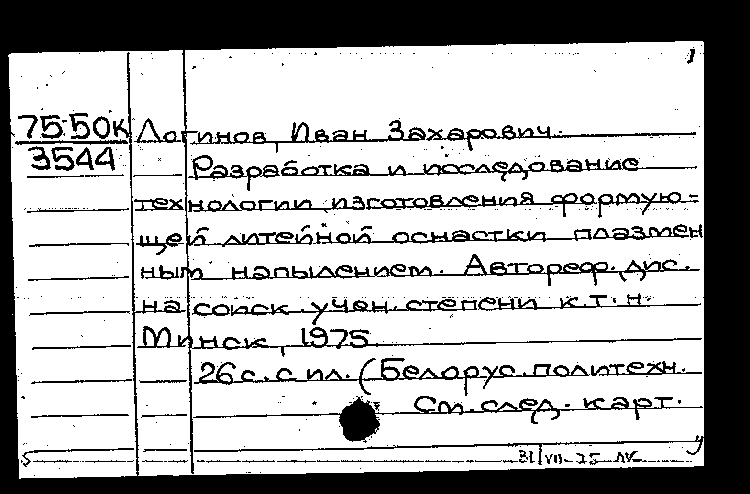 1
75-50к Логинов, Иван Захарович.
3544 Разработка и исследование
технологии изготовления формую=
щей литейной оснастки плазмен
ным напылением. Автореф. дис.
на соиск. учен. степени к.т.н.
Минск, 1975.
26 с. с ил. (Белорус. политехн.
См. след. карт.
31/VII-75